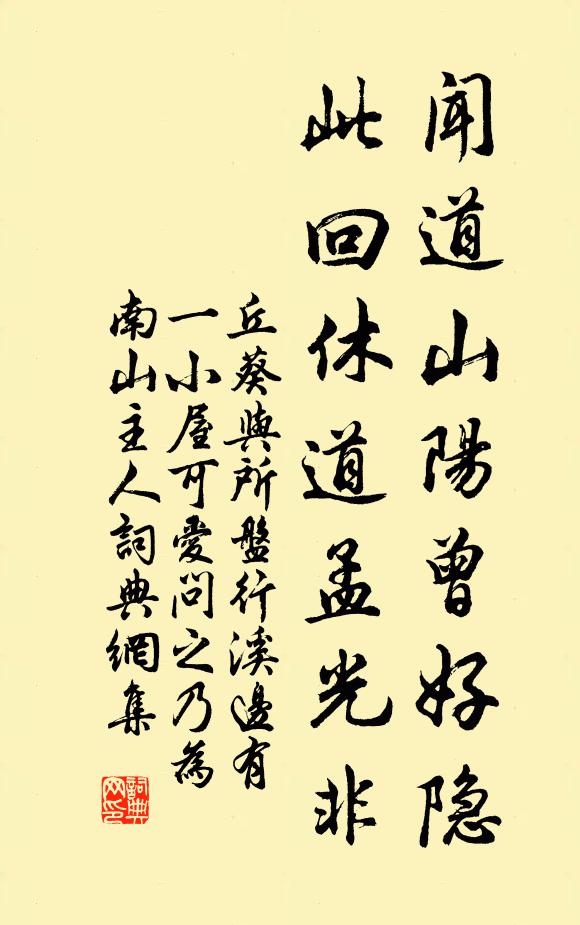 聞道山陽曾好隐
此回休道孟光非
丘葵與所盤行溪邊有
一小屋可愛問之乃為
南山主人詞典網集
詞典网印